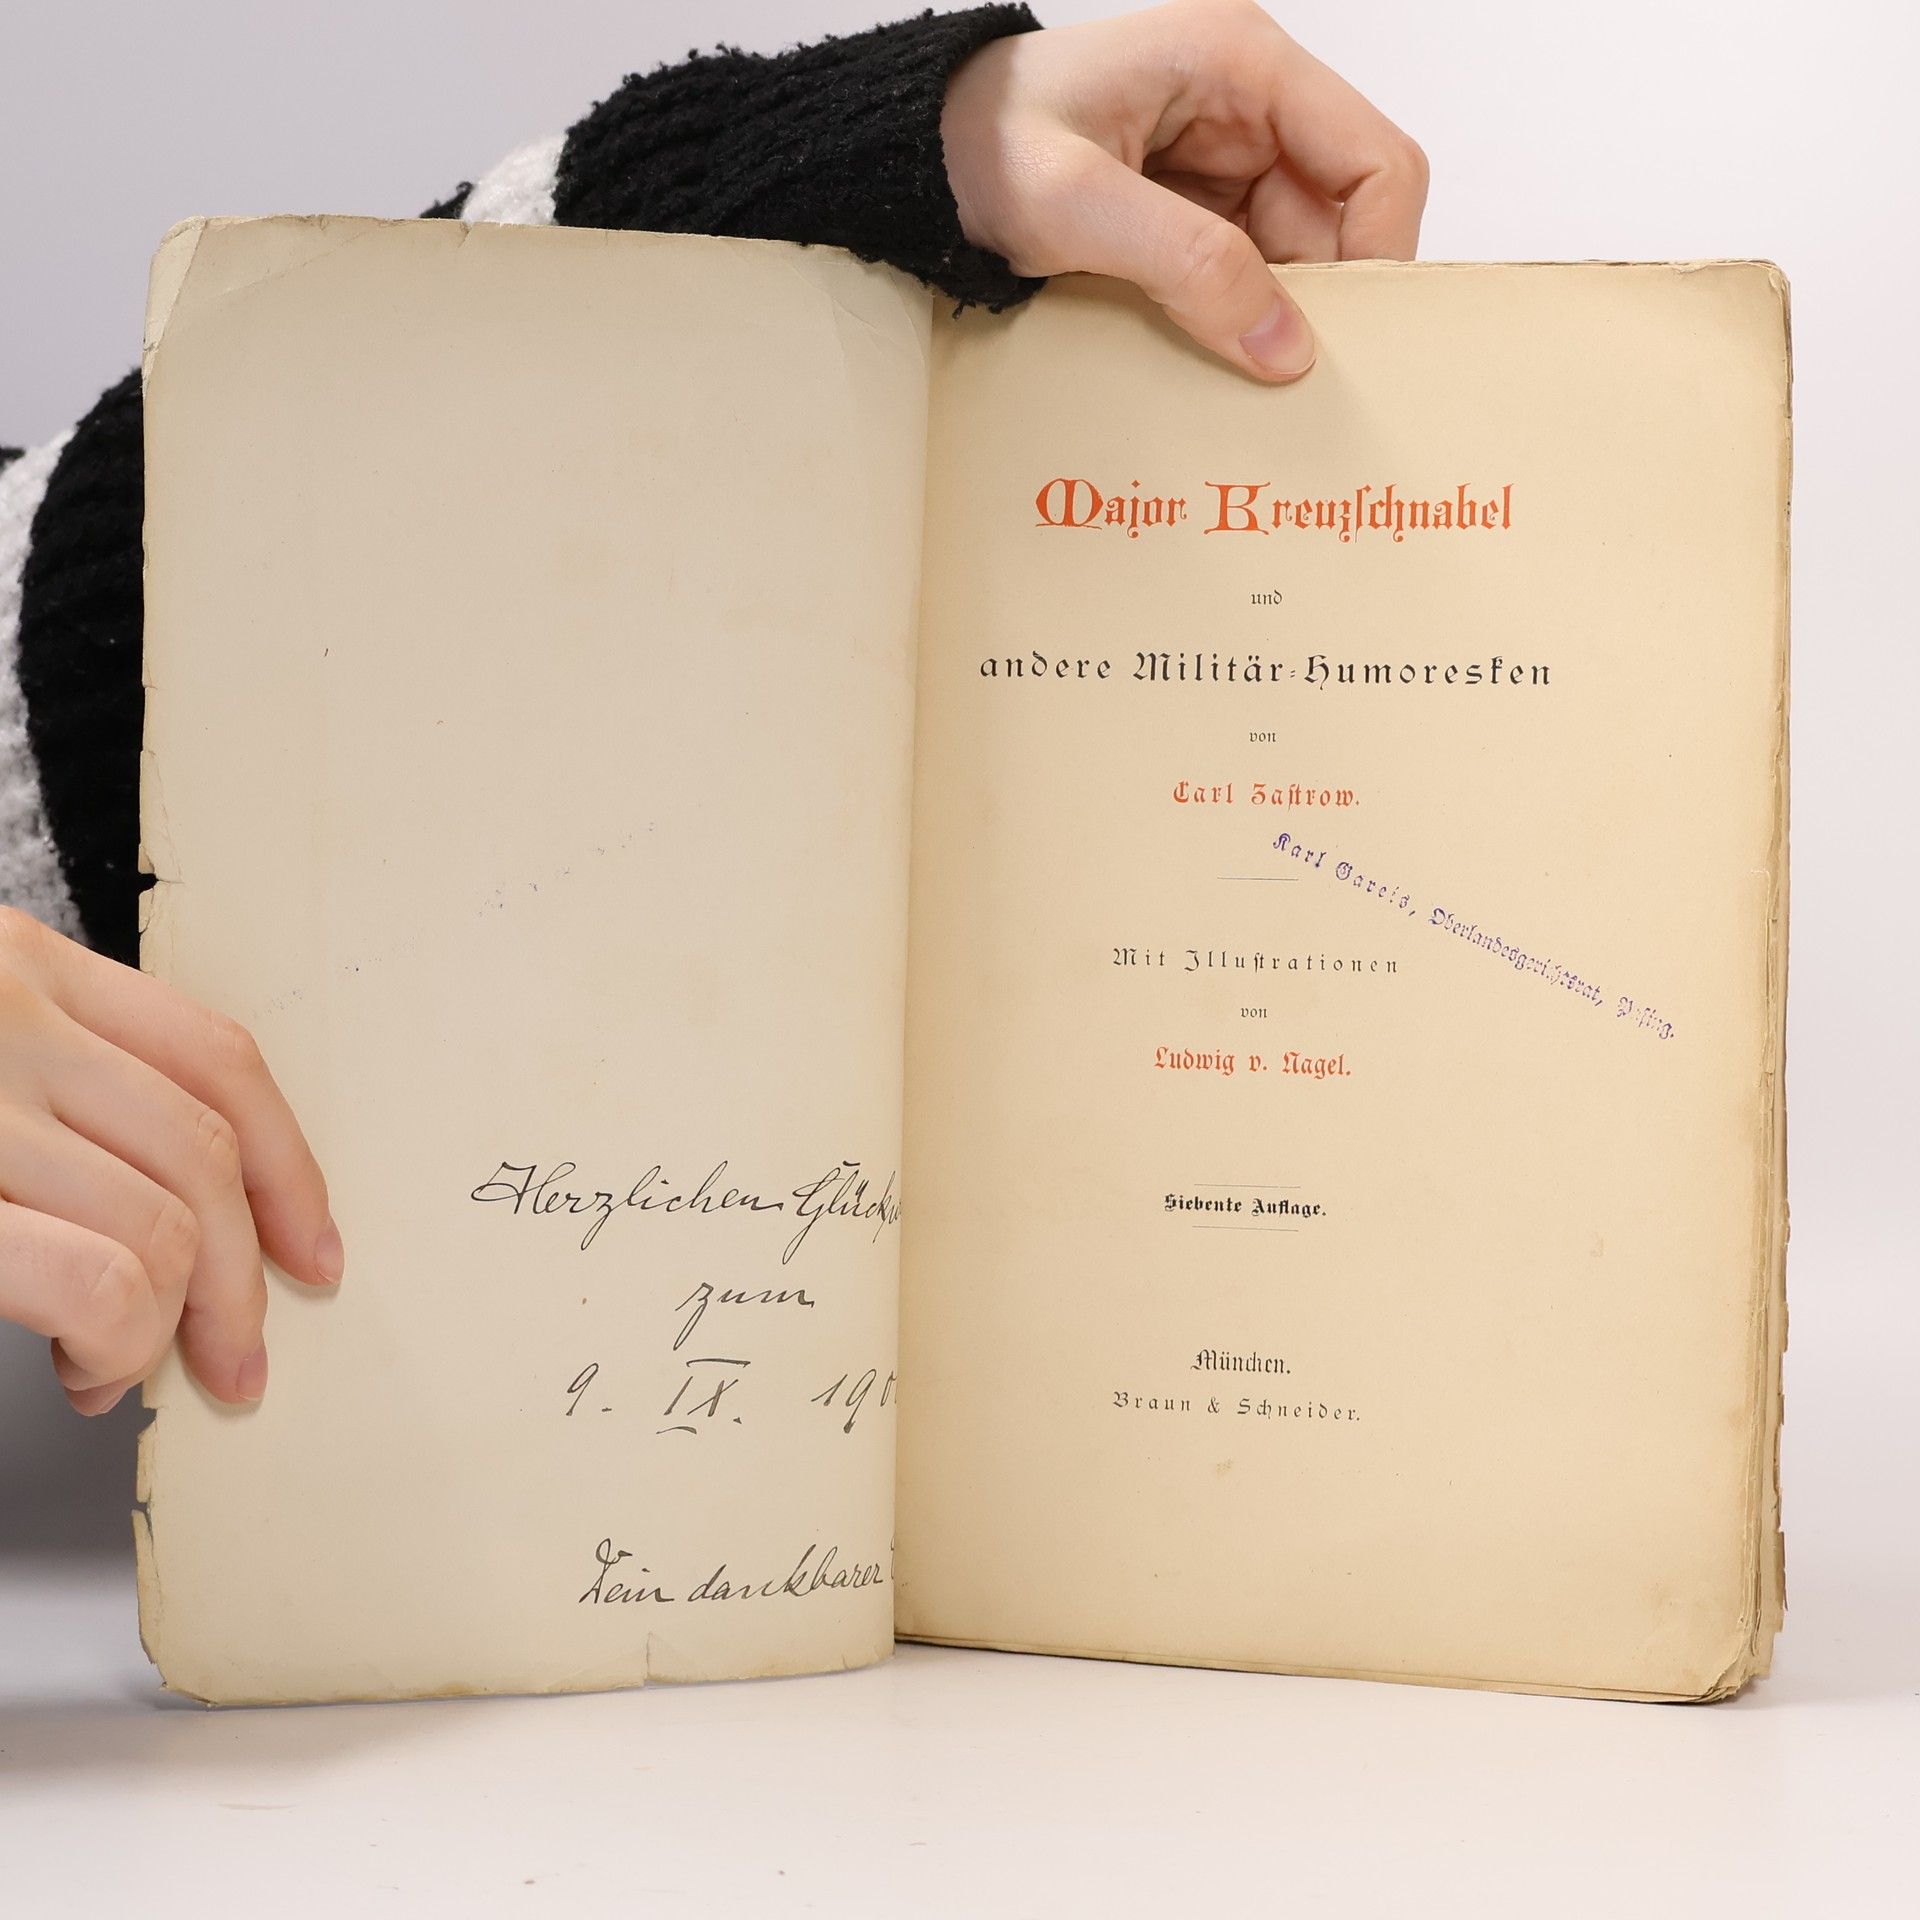 Herzlichen Glück
zum
9. IX. 190
Dein dankbarer
Major Kreuzſchnabel
und
andere Militär-Humoresken
von
Carl Zaſtrow.
Karl Gareis, Oberlandesgerichtsrat, Paſing.
Mit Illuſtrationen
von
Ludwig v. Nagel.
Siebente Auflage.
München.
Braun & Schneider.